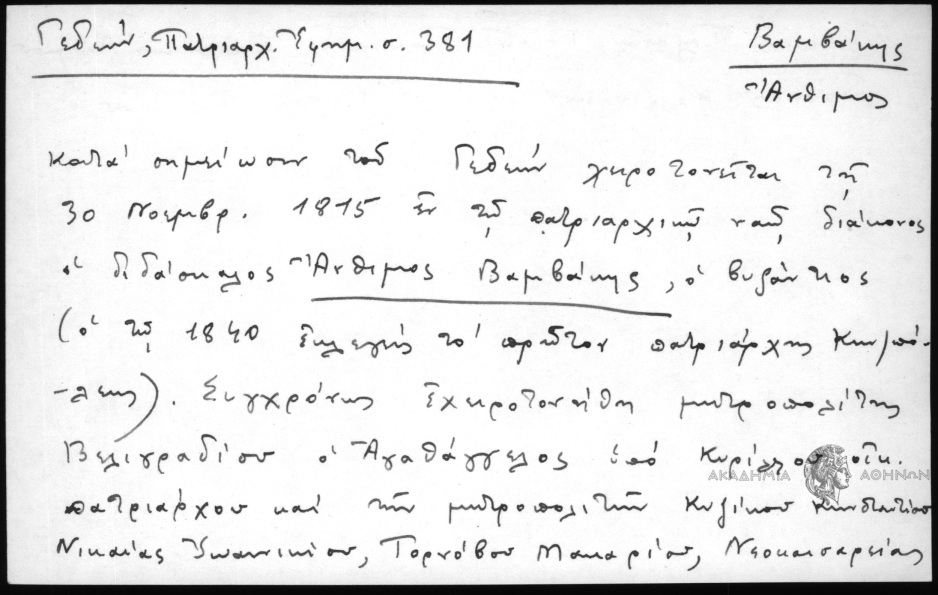 Γεδεών, Πατριαρχ. Ἐφημ. σ. 381
Βαμβάκης
Ἄνθιμος
κατά σημείωσιν τοῦ Γεδεών χειροτονεῖται τῇ
30 Νοεμβρ. 1815 ἐν τῷ πατριαρχικῷ ναῷ διάκονος
ὁ διδάσκαλος Ἄνθιμος Βαμβάκης, ὁ βυζάντιος
(ὁ τῷ 1840 ἐκλεγείς τό πρῶτον πατριάρχης Κων/πό-
-λεως). Συγχρόνως ἐχειροτονήθη μητροπολίτης
Βελιγραδίου ὁ Ἀγαθάγγελος ὑπό Κυρίλλου οἰκ.
ΑΚΑΔΗΜΙΑ ΑΘΗΝΩΝ
πατριάρχου καί τῶν μητροπολιτῶν Κυζίκου Κωνσταντίου
Νικαίας Ἰωαννικίου, Τορνόβου Μακαρίου, Νεοκαισαρείας